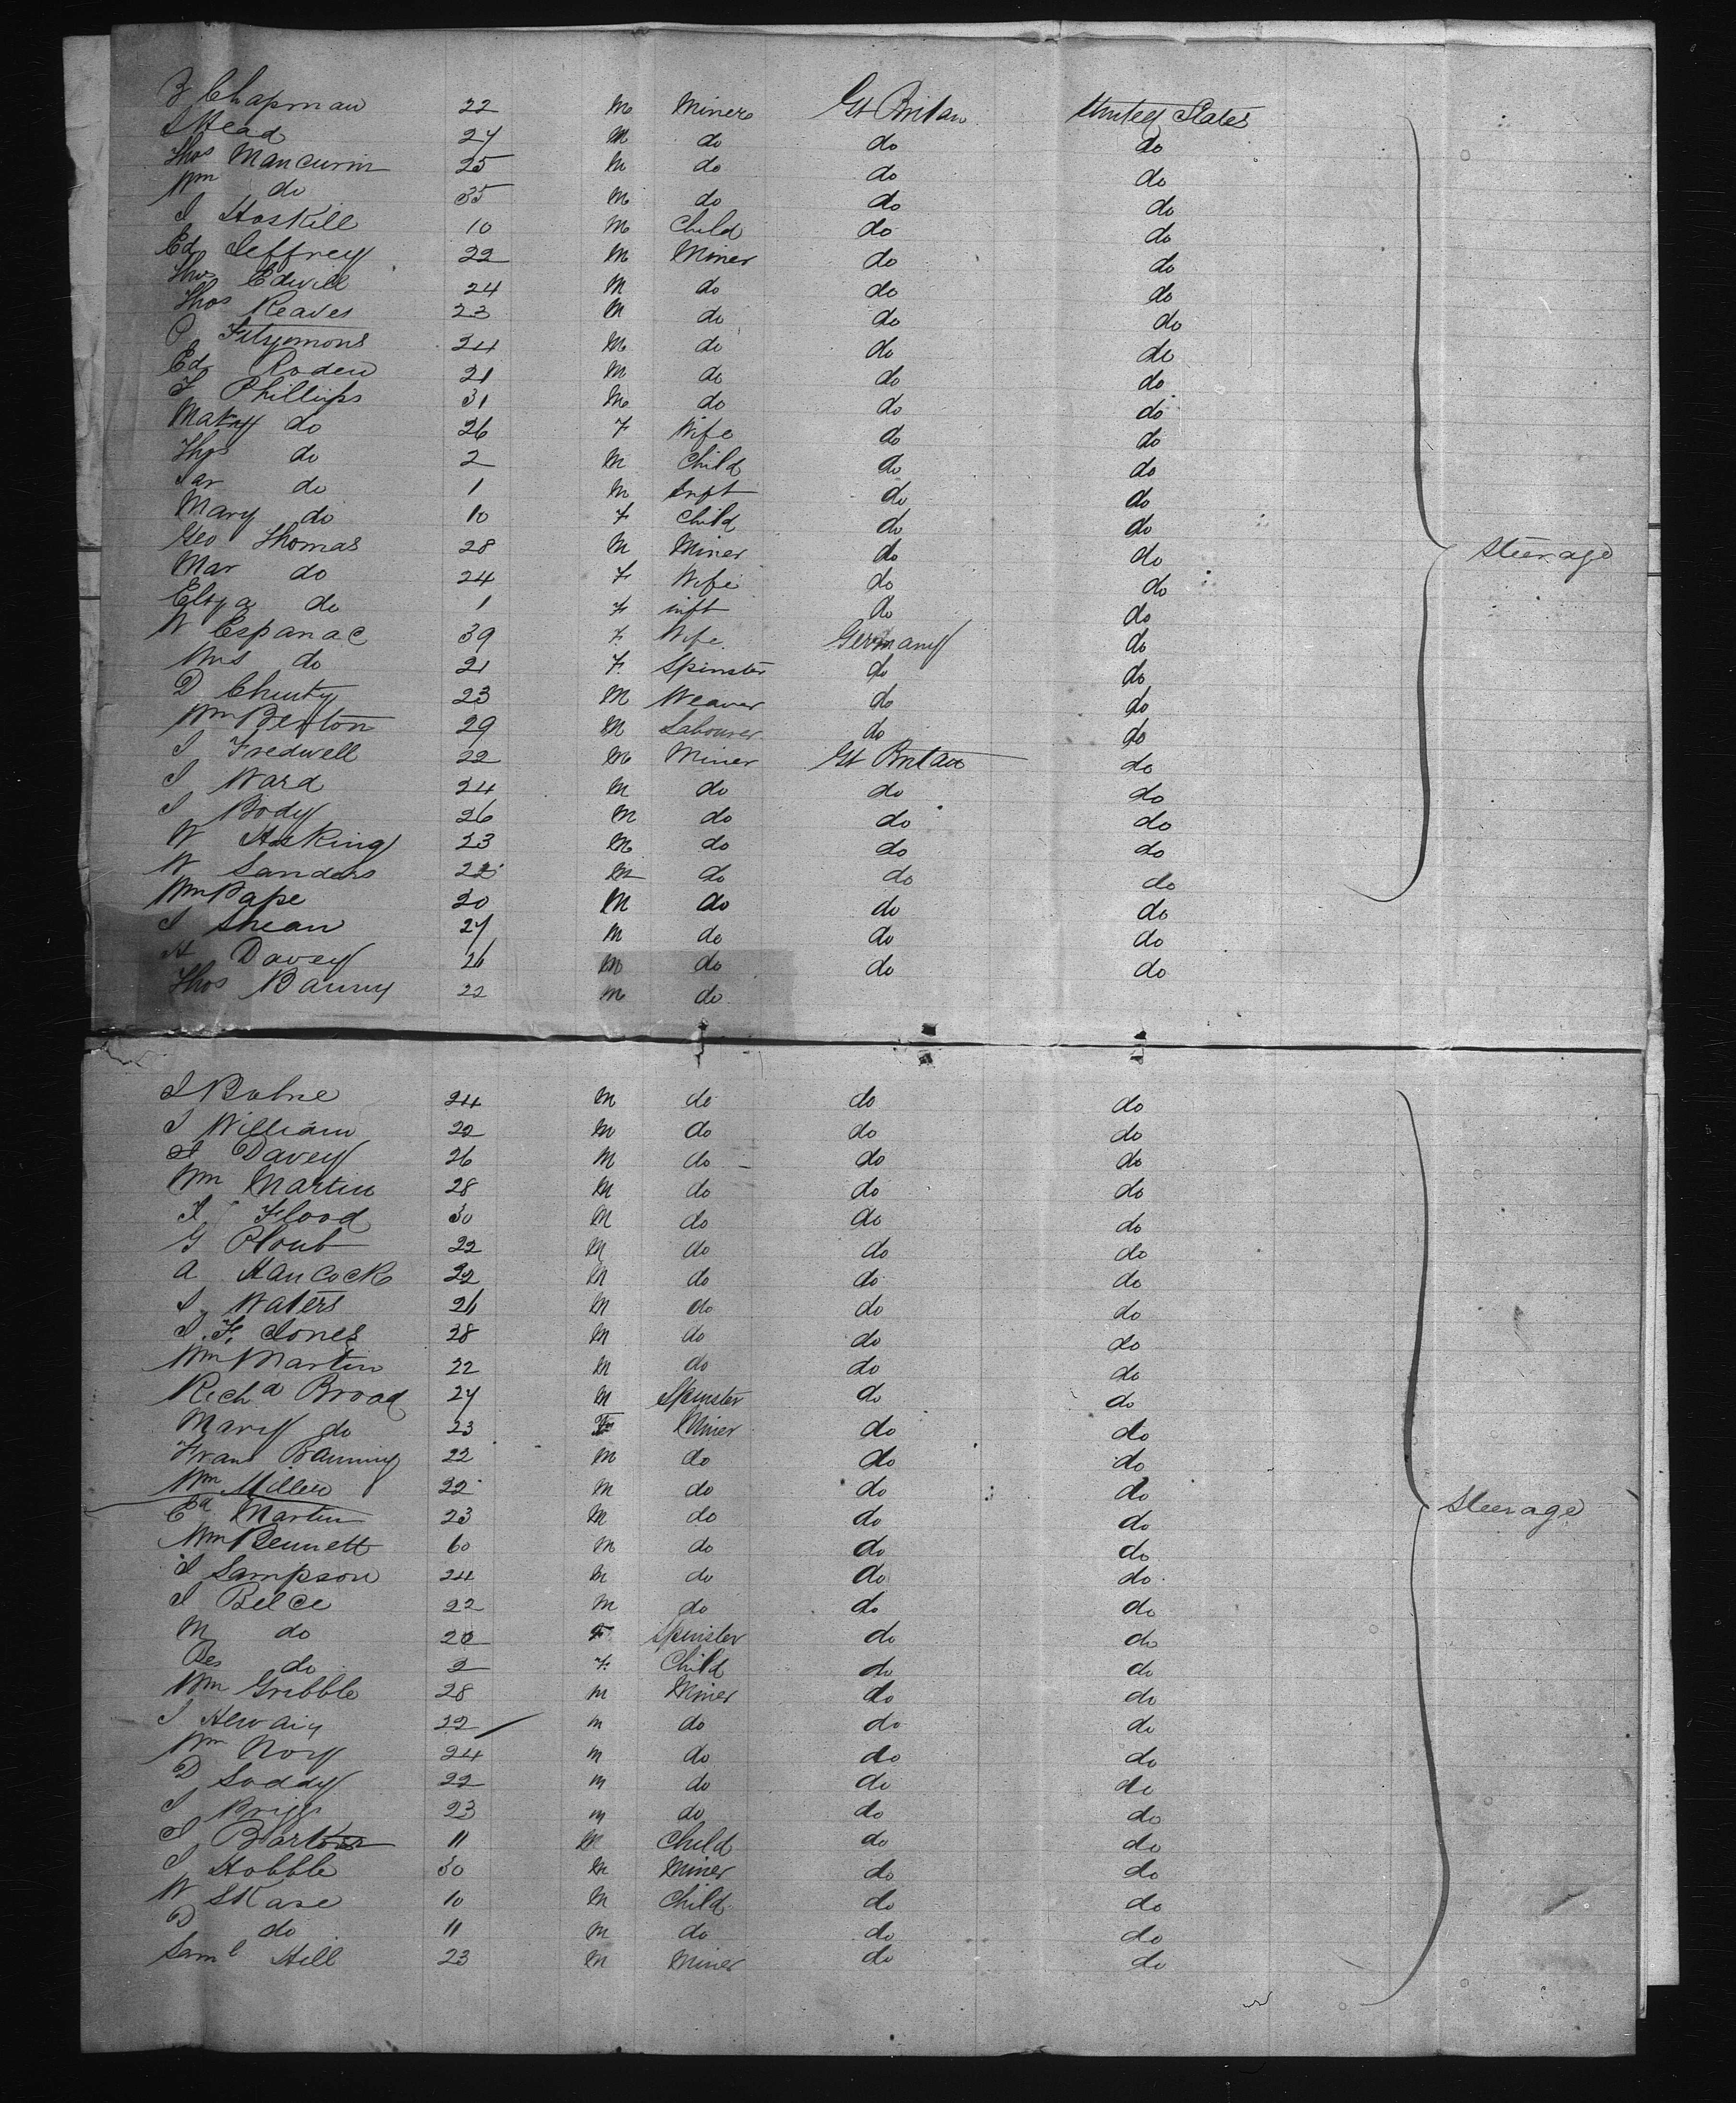 Z Chapman 22 M Miner Gt Britan United States
J Mead 27 M do do do
Thos Mancurin 25 M do do do
Wm do 35 M do do do
J Hoskill 10 M Child do do
Ed Jeffrey 22 M Miner do do
Thos Edwill 24 M do do do
Thos Reaves 23 M do do do
P Fitzsimons 24 M do do do
Ed Roden 21 M do do do
J Phillips 31 M do do do
Mary do 26 F Wife do do
Thos do 2 M Child do do
Jar do 1 M Inft do do
Mary do 10 F Child do do
Geo Thomas 28 M Miner do do Steerage
Mar do 24 F Wife do do
Eliza do 1 F inft do do
W Espanac 39 F Wife Germany do
Mrs do 21 F Spinster do do
D Chusty 23 M Weaver do do
Wm Benton 29 M Labourer do do
J Tredwell 22 M Miner Gt Britan do
J Ward 24 M do do do
J Body 26 M do do do
W Hosking 23 M do do do
W Sanders 22 M do do do
Wm Pape 20 M do do do
J Shean 27 M do do do
H Davey 26 M do do do
Thos Banny 22 M do
J Bolne 24 M do do do
J William 22 M do do do
H Davey 26 M do do do
Wm Martin 28 M do do do
J Flood 30 M do do do
G Plout 22 M do do do
A Hancock 22 M do do do
J Waters 26 M do do do
J. F. Jones 28 M do do do
Wm Martin 22 M do do do
Richd Broad 27 M Spinster do do
Mary do 23 F Miner do do
Frans Banning 22 M do do do
Wm Miller 22 M do do do
Ed Martin 23 M do do do Steerage
Wm Bennett 60 M do do do
J Sampson 24 M do do do
J Belce 22 M do do do
M do 20 F Spinster do do
Bes do 2 F Child do do
Wm Gribble 28 M Miner do do
J 22 M do do do
Wm Rory 24 M do do do
D Soddy 22 M do do do
J Briggs 23 M do do do
J 11 M Child do do
J Hobble 30 M Miner do do
W Skase 10 M Child do do
D do 11 M do do do
Saml Hill 23 M Miner do do